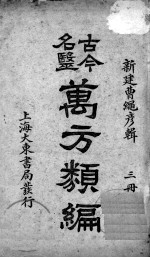 新建曹繩彥輯
三冊
古今
名醫
萬方類編
上海大東書局發行